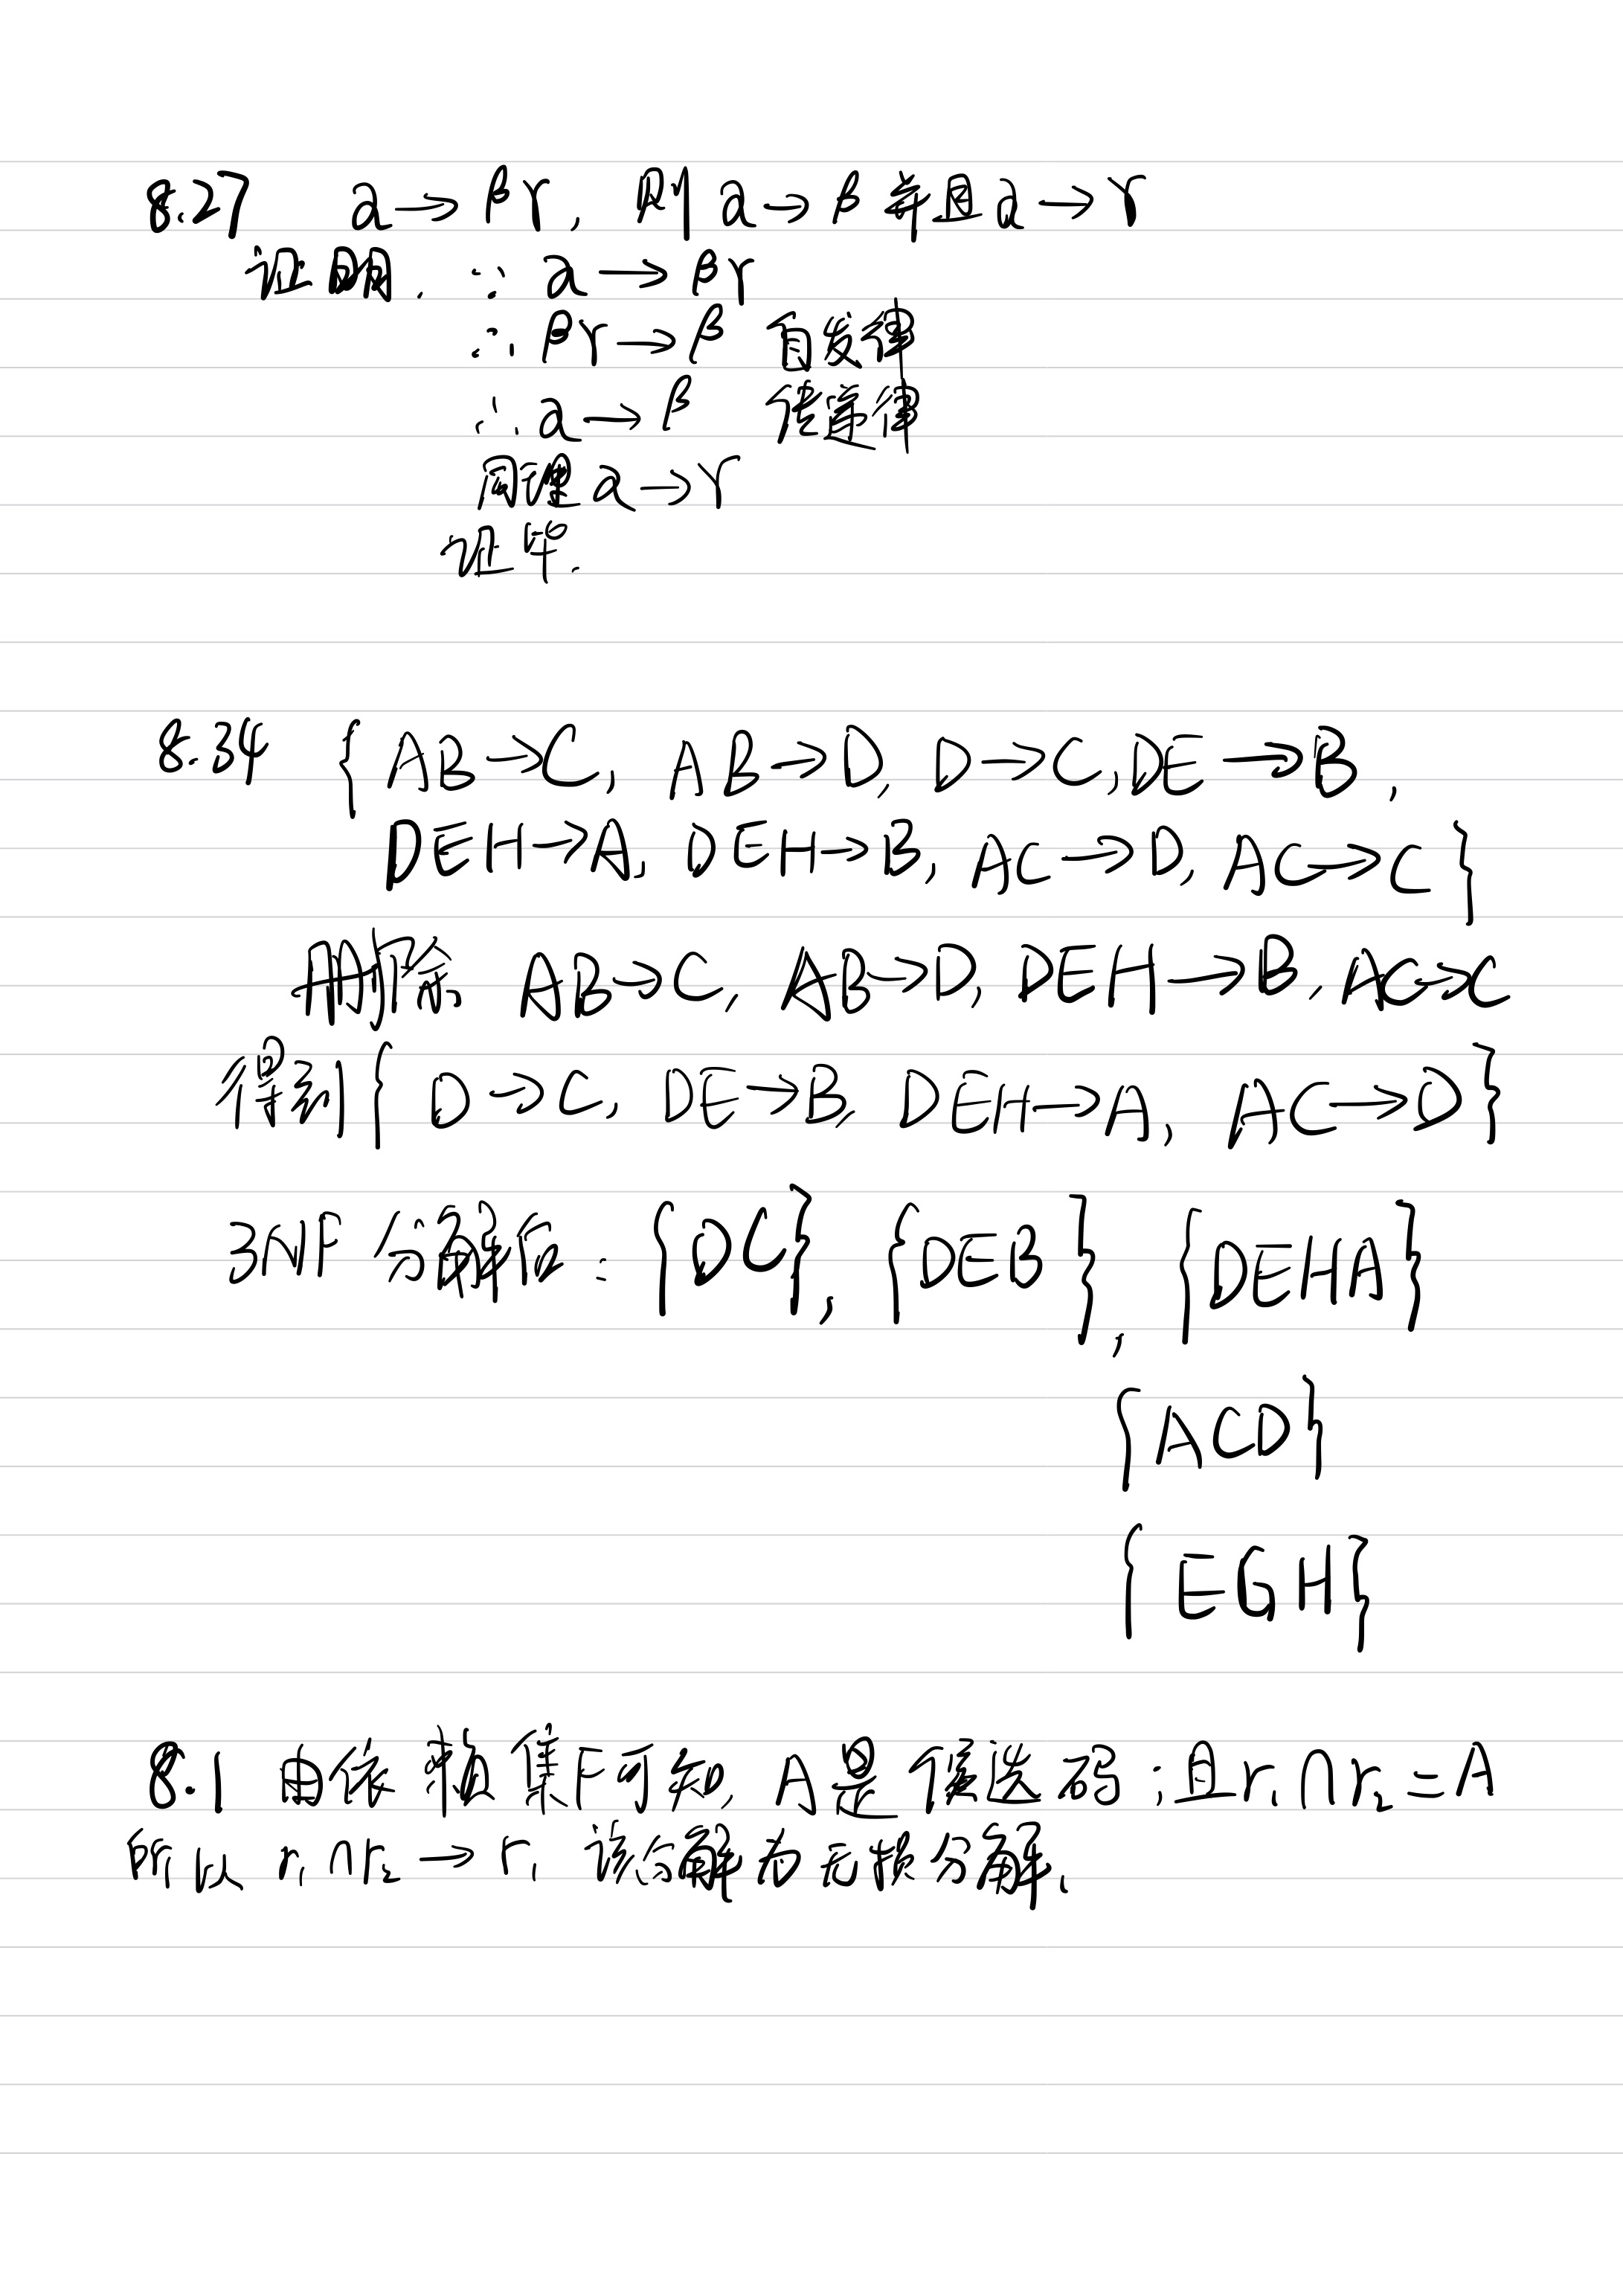 8.27 a→βγ, 则a→β并且a→γ
证明. ∵ a→βγ
∴ βγ→β 自反律
∴ a→β 传递律
同理a→γ
证毕.
8.34 {AB→C, AB→D, D→C, DE→B,
DEH→A, DEH→B, AC→D, AC→C}
删除 AB→C, AB→D, DEH→B, AC→C
得到{D→C, DE→B, DEH→A, AC→D}
3NF分解后: {DC}, {DEB}, {DEHA}
{ACD}
{EGH}
8.1 由依赖集可知, A是候选码; 且r₁∩r₂=A
所以 r₁∩r₂→r₁ 该分解为无损分解.